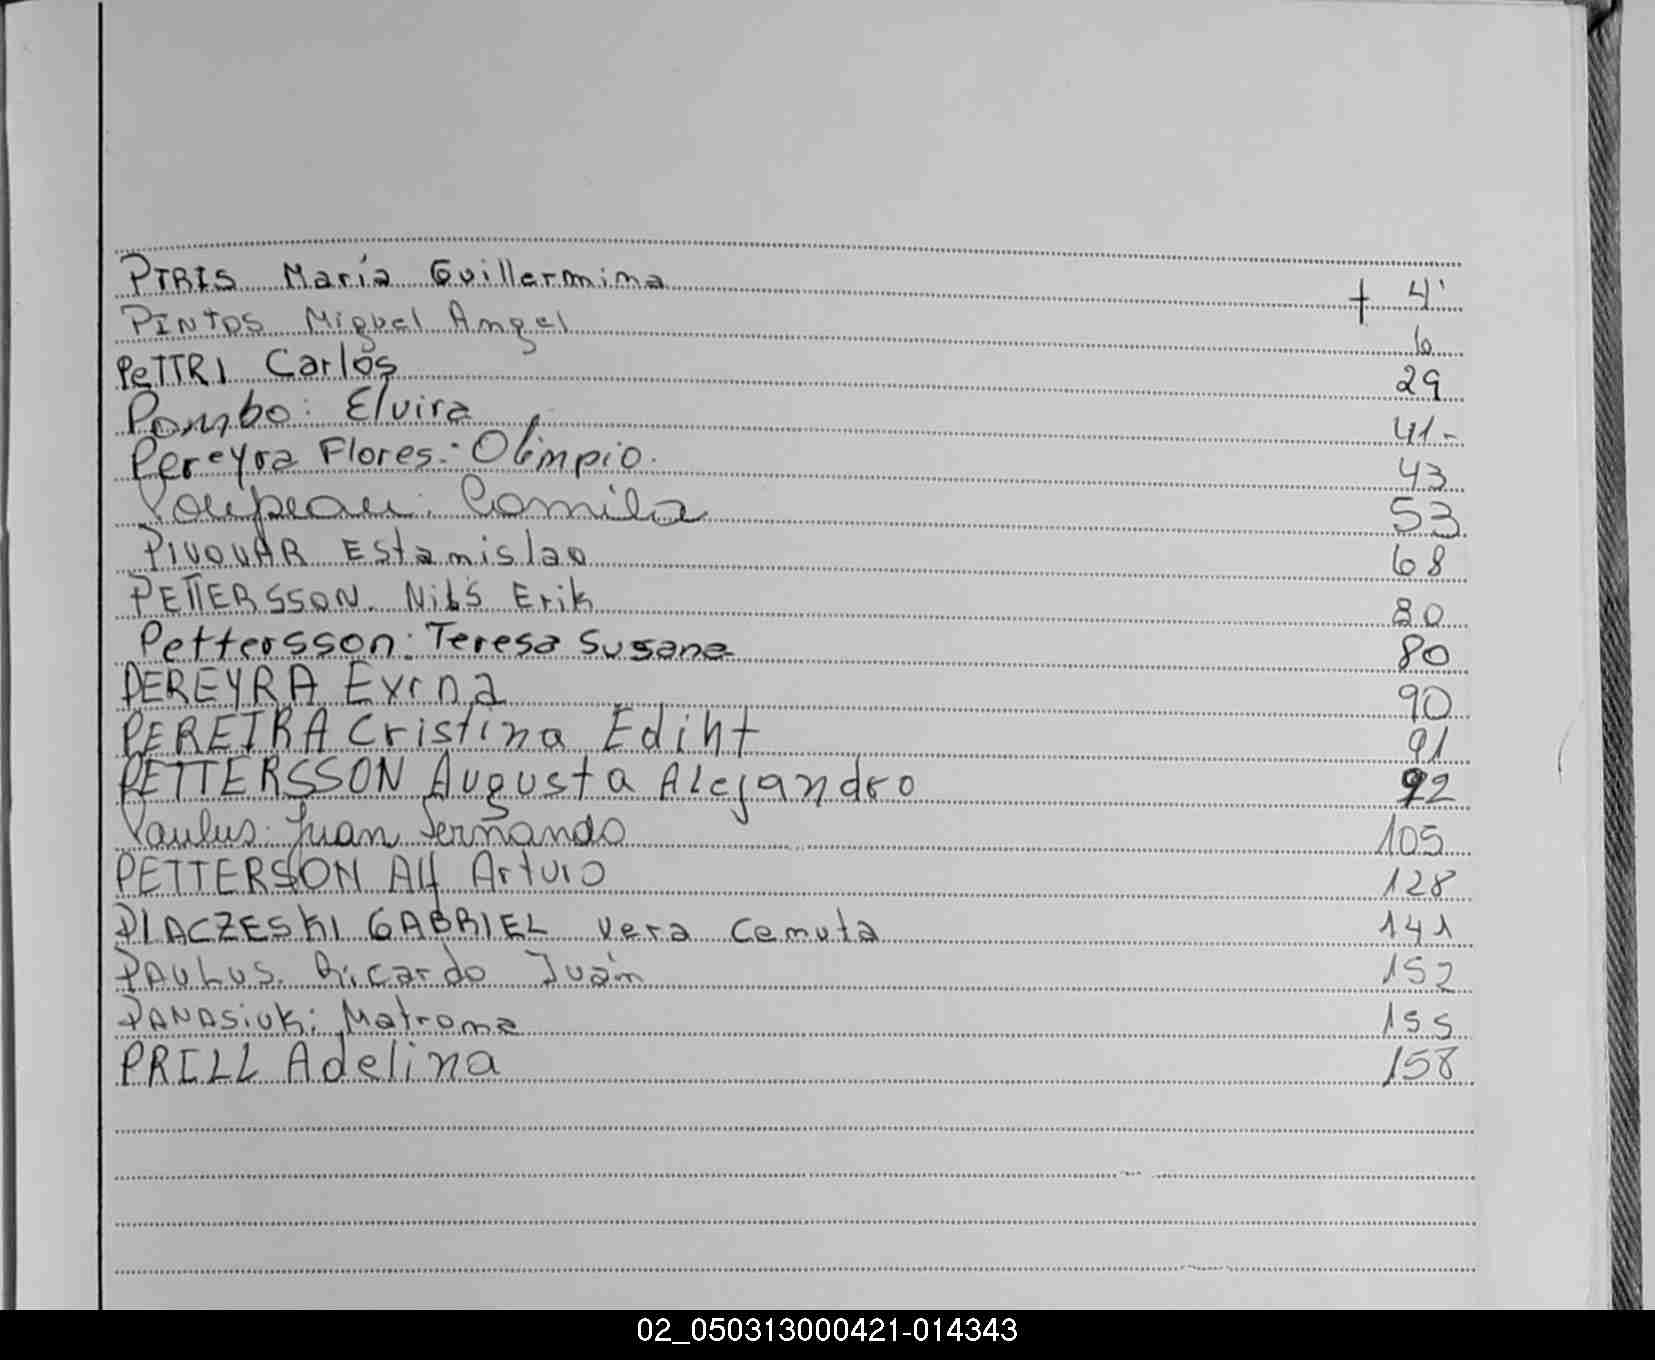 PIRIS María Guillermina + 4'
PINTOS Miguel Angel 6
PeTTRI Carlos 29
Pombo: Elvira 41-
Pereyra Flores: Olimpio. 43
Poupeau: Camila 53
PIVOVAR Estanislao 68
PETTERSSON Nils Erik 80
Pettersson: Teresa Susana 80
PEREYRA 90
PEREIRA Cristina Ediht 91
PETTERSSON Augusta Alejandro 92
Paulus: Juan Fernando 105
PETTERSSON Alf Arturo 128
PLACZESKI GABRIEL Vera 141
PAULUS. Ricardo Juan 152
PANASIUK: Matrona 155
PRILL Adelina 158
02_050313000421-014343